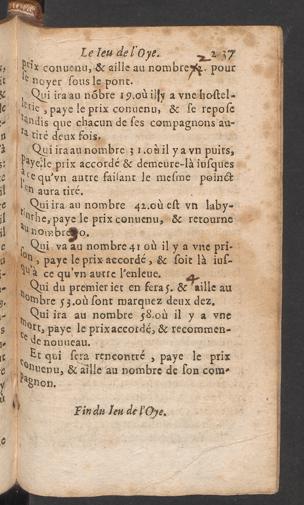 Le Ieu de l'Oye. 237
prix conuenu, & aille au nombre 2. pour
se noyer sous le pont.
Qui ira au nõbre 19. où il y a vne hostel-
lerie, paye le prix conuenu, & se repose
tandis que chacun de ses compagnons au-
ra tiré deux fois.
Qui ira au nombre 31. où il y a vn puits,
paye le prix accordé & demeure-là iusques
à ce qu'vn autre faisant le mesme poinct
l'en aura tiré.
Qui ira au nombre 42. où est vn laby-
rinthe, paye le prix conuenu, & retourne
au nombre 30.
Qui va au nombre 41 où il y a vne pri-
son, paye le prix accordé, & soit là ius-
qu'à ce qu'vn autre l'enleue.
Qui du premier iet en fera 5. & 4 aille au
nombre 53. où sont marquez deux dez.
Qui ira au nombre 58. où il y a vne
mort, paye le prix accordé, & recommen-
ce de nouueau.
Et qui sera rencontré, paye le prix
conuenu, & aille au nombre de son com-
pagnon.
Fin du Ieu de l'Oye.